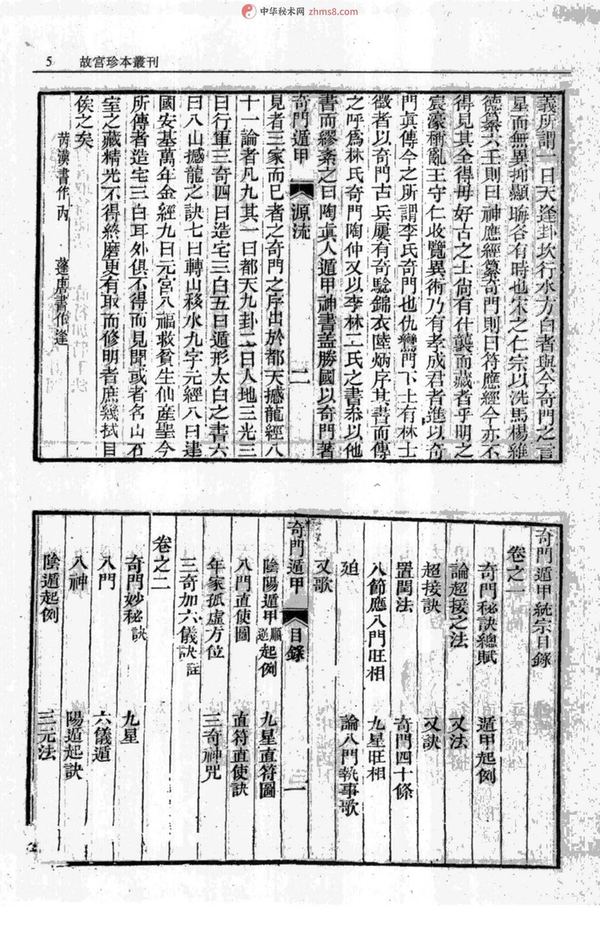 中华秘术网 zhms8.com
5 故宫珍本叢刊
義所謂一日天逢卦坎行水方白者與今奇門之言
星而無異抑顯晦各有時也宋之仁宗以洗馬楊維
德纂六壬則曰神應經纂奇門則曰符應經今亦不
得見其全得毋好古之士尚有什襲而藏者乎明之
宸濠稱亂王守仁收覽異術乃有孝成君者進以奇
門真傳今之所謂李氏奇門也仇鸞門下上有林士
徵者以奇門古兵屢有奇驗錦衣陸炳序其書而傳
之呼為林氏奇門陶仲又以李林二氏之書叅以他
書而繆紊之曰陶真人遁甲神書盖勝國以奇門著
奇門遁甲 源流 二
見者三家而已考之奇門之序出於都天撼龍經八
十一論者凡九其一曰都天九卦二曰人地三光三
曰行軍三奇四曰造宅三白五曰遁形太白之書六
曰八山撼龍之訣七曰轉山移水九字元經八曰建
國安基萬年金經九曰元宮八福救貧生仙産聖今
所傳者造宅三白耳外俱不得而見聞或者名山石
室之藏精光不得終磨更有取而修明者庶幾拭目
俟之矣
芮漢書作内 蓬唐書作逢
奇門遁甲統宗目錄
卷之一
奇門秘訣總賦 遁甲起例
論超接之法 又法
超接訣 又訣
置閏法 奇門四十條
八節應八門旺相 九星旺相
迫 論八門執事歌
又歌
奇門遁甲 目錄 一
陰陽遁甲順逆起例 九星直符圖
八門直使圖 直符直使訣
年家孤虛方位 三奇神咒
三奇加六儀訣註
卷之二
奇門妙秘訣 九星
八門 六儀遁
八神 陽遁起訣
陰遁起例 三元法